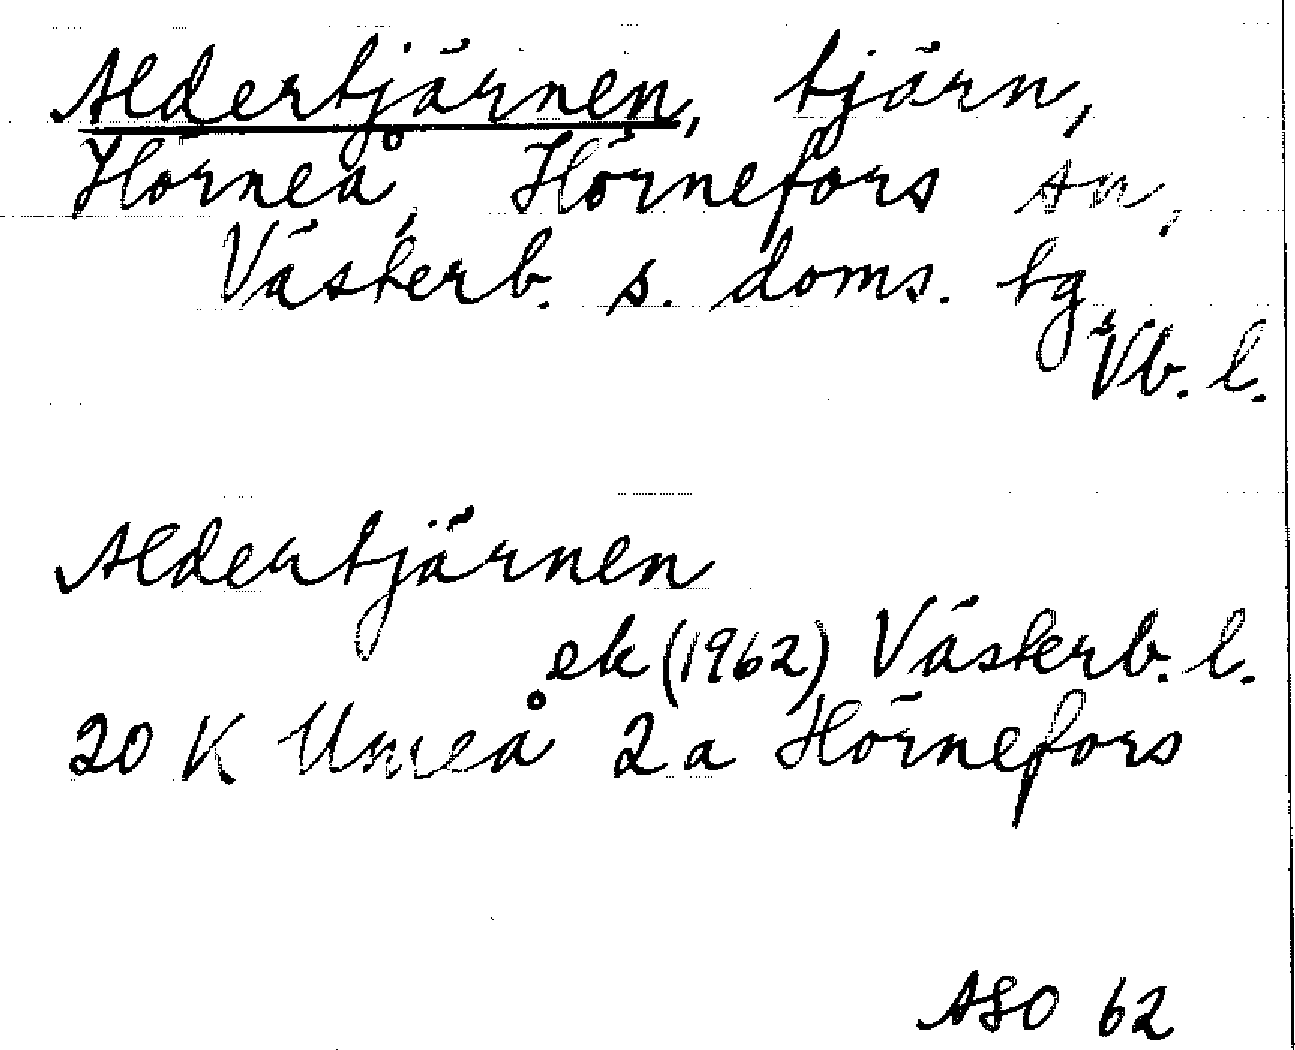 Aldertjärnen, tjärn,
Hörneå, Hörnefors sn,
Västerb. s. doms. tg,
Vb. l.
Aldertjärnen
ek (1962) Västerb. l.
20 K Umeå 2a Hörnefors
ASO 62